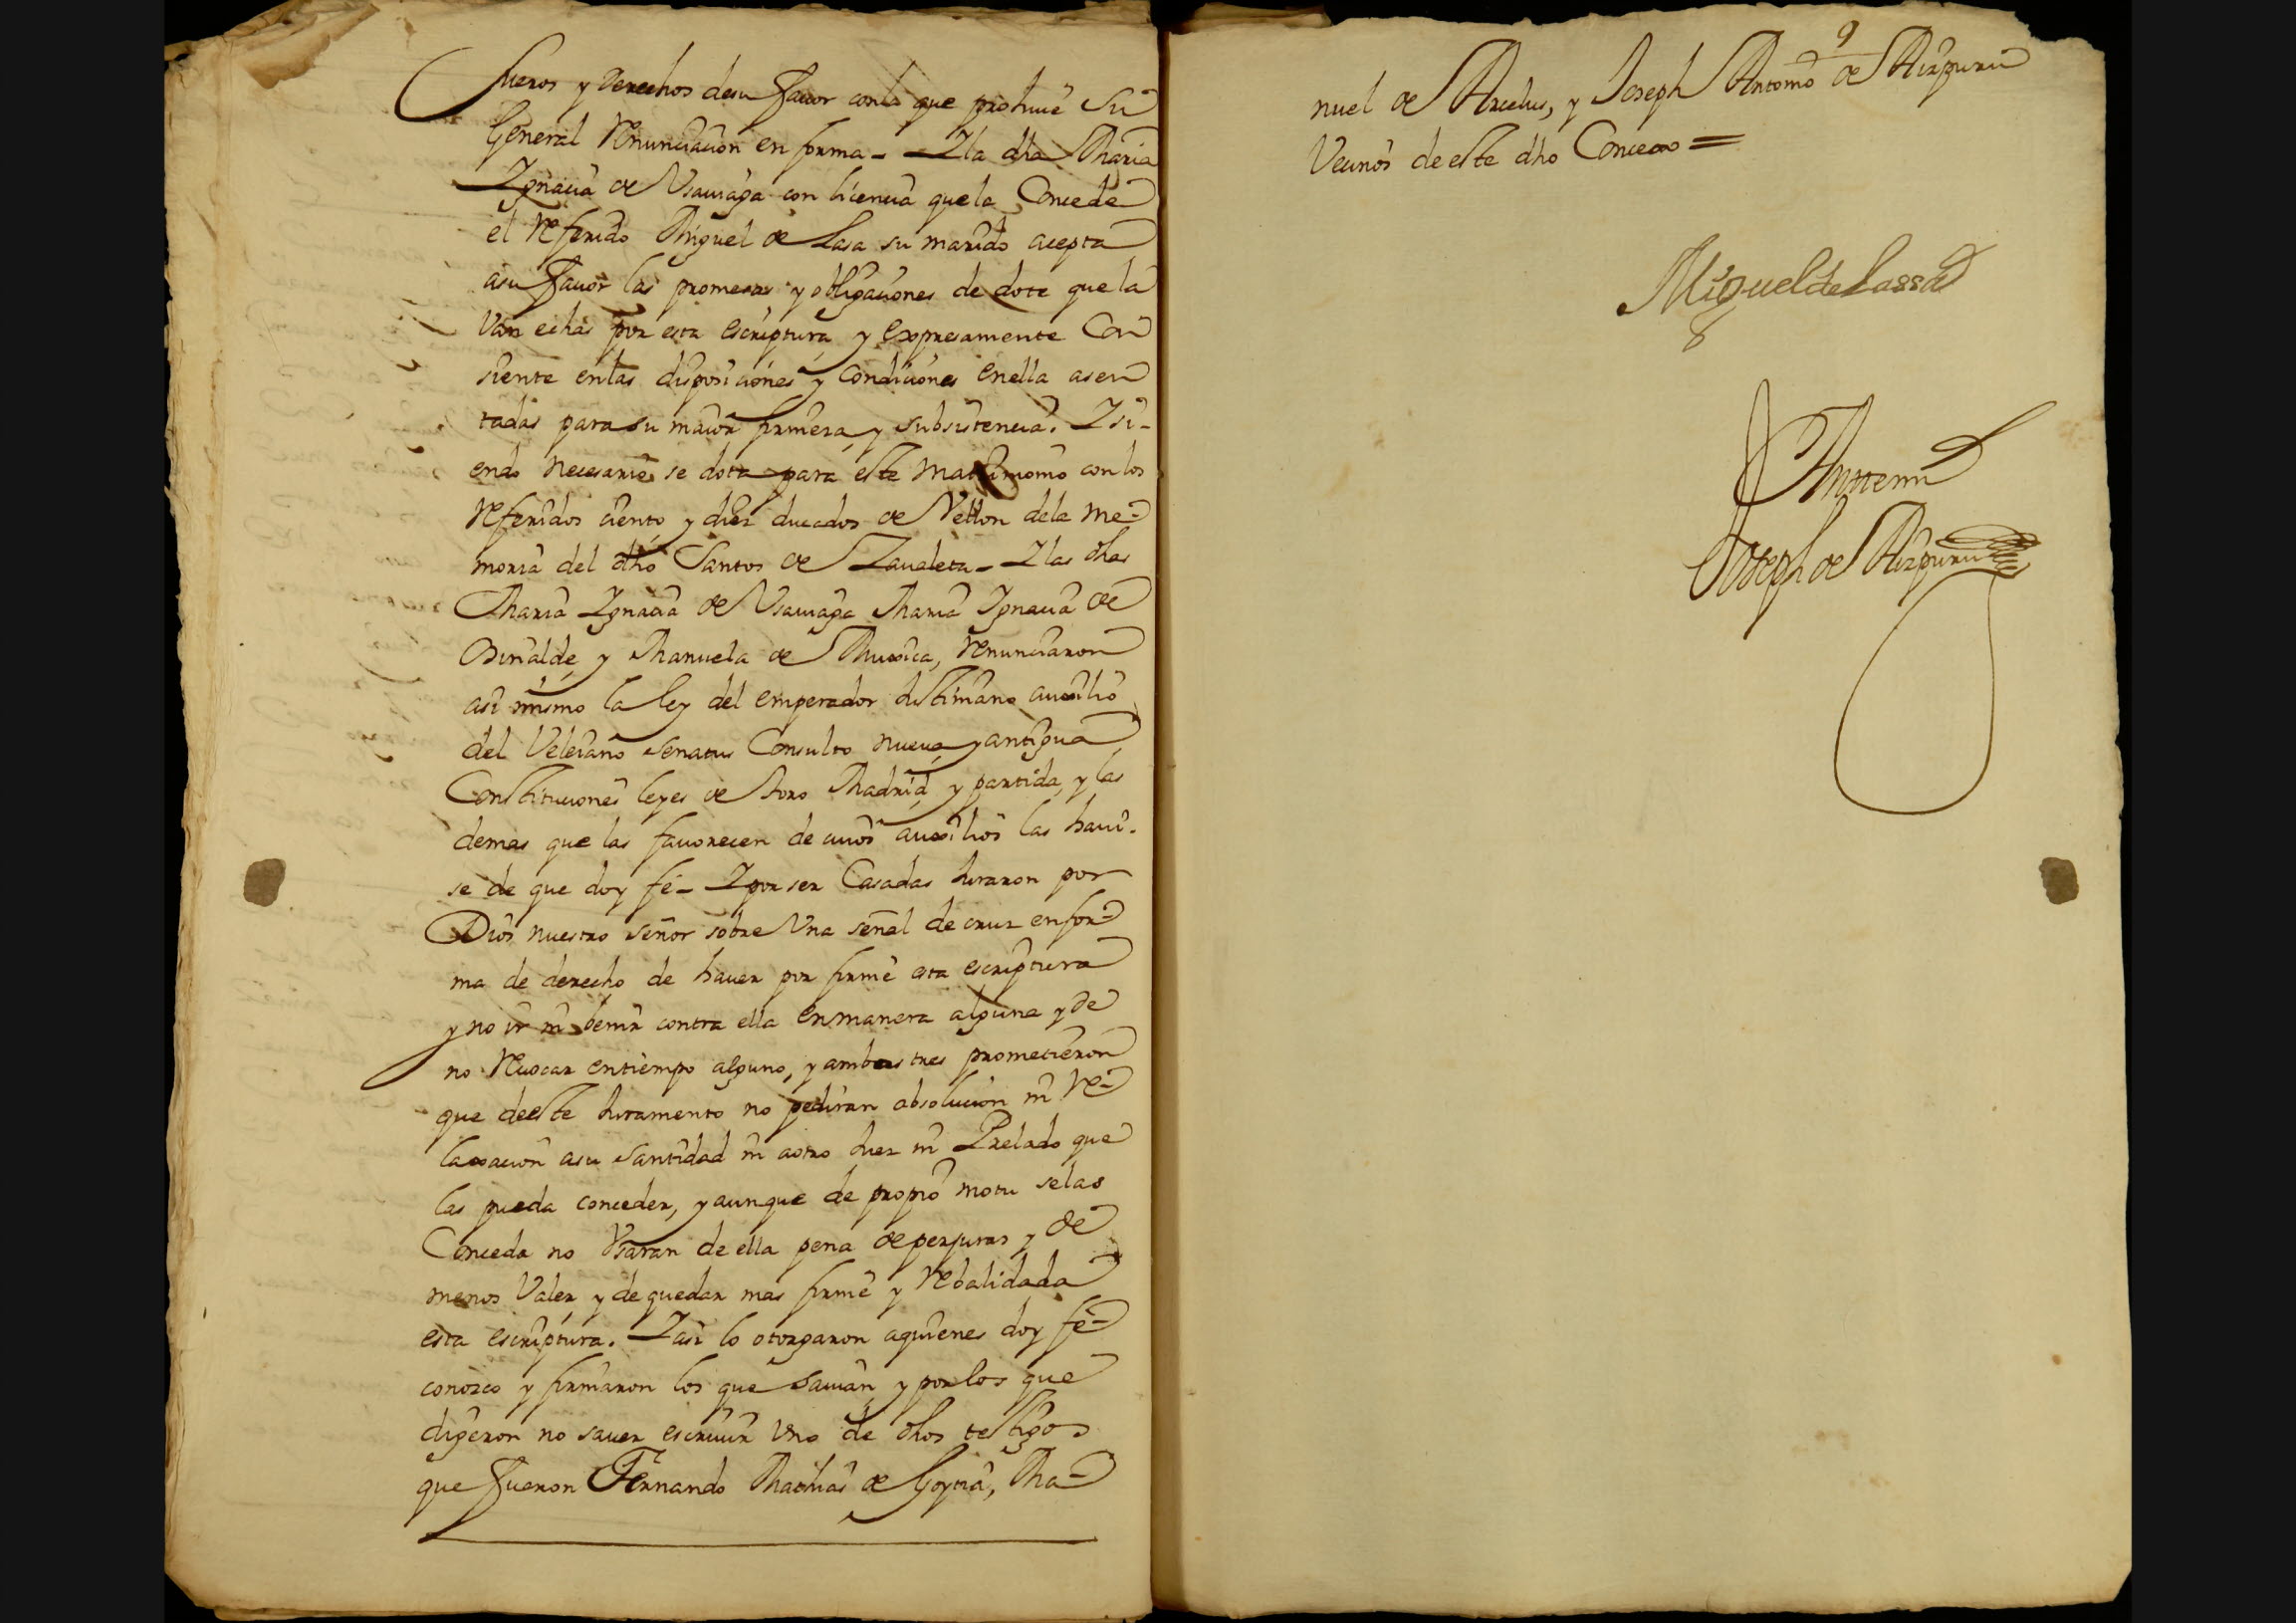 fueros y derechos desu fauor conla que prohiue su
General Renunciacion en forma - Y la dha Maria
Ygnacia de Vsauiaga con licencia quela Concede
el Referido Miguel de Lasa su marido acepta
asu fauor las promesas y obligaciones de dote quela
Van echas por esta escriptura y expresamente Con
siente enlas disposiciones y condiciones enella asen
tadas para su maior firmeza y subsistencia. Y si-
endo necesario se dota para este matrimonio con los
Referidos ciento y diez ducados de Vellon dela me-
moria del dho Santos de Zaualeta - Y las dhas
Maria Ygnacia de Vsauiaga Maria Ygnacia de
y Manuela de Muxica, Renunciaron
asi mismo la ley del emperador Justiniano auxilio
del Veleiano Senatus Consulto nueua y antigua
Constituciones leyes de toro Madrid, y partida, y las
demas que las fauorecen de cuios auxilios las haui-
se de que doy fé - Y por ser Casadas Juraron por
Dios nuestro señor sobre Una señal de cruz enfor-
ma de derecho de hauer por firme esta escriptura
y no ir ni benir contra ella enmanera alguna y de
no Reuocar entiempo alguno, y ambas tres prometieron
que deeste Juramento no pediran absolucion ni Re-
laxacion asu Santidad ni aotro Juez ni Prelado que
las pueda conceder, y aunque de propio motu selas
Conceda no Vsaran de ella pena de perjuras y de
menos Valer y de quedar mas firme y Rebalidada
esta escriptura. Y asi lo otorgaron aquienes doy fé
conozco y firmaron los que sauian, y por los que
digeron no sauer escriuir Vno de dhos testigos
que fueron Fernando Mathias de Goytia, Ma-
9
nuel de Arcelus, y Joseph Antonio de Aizpuru
Vecinos de este dho Concexo =
Miguel de Lassa
Antemi
Joseph de Aizpuru